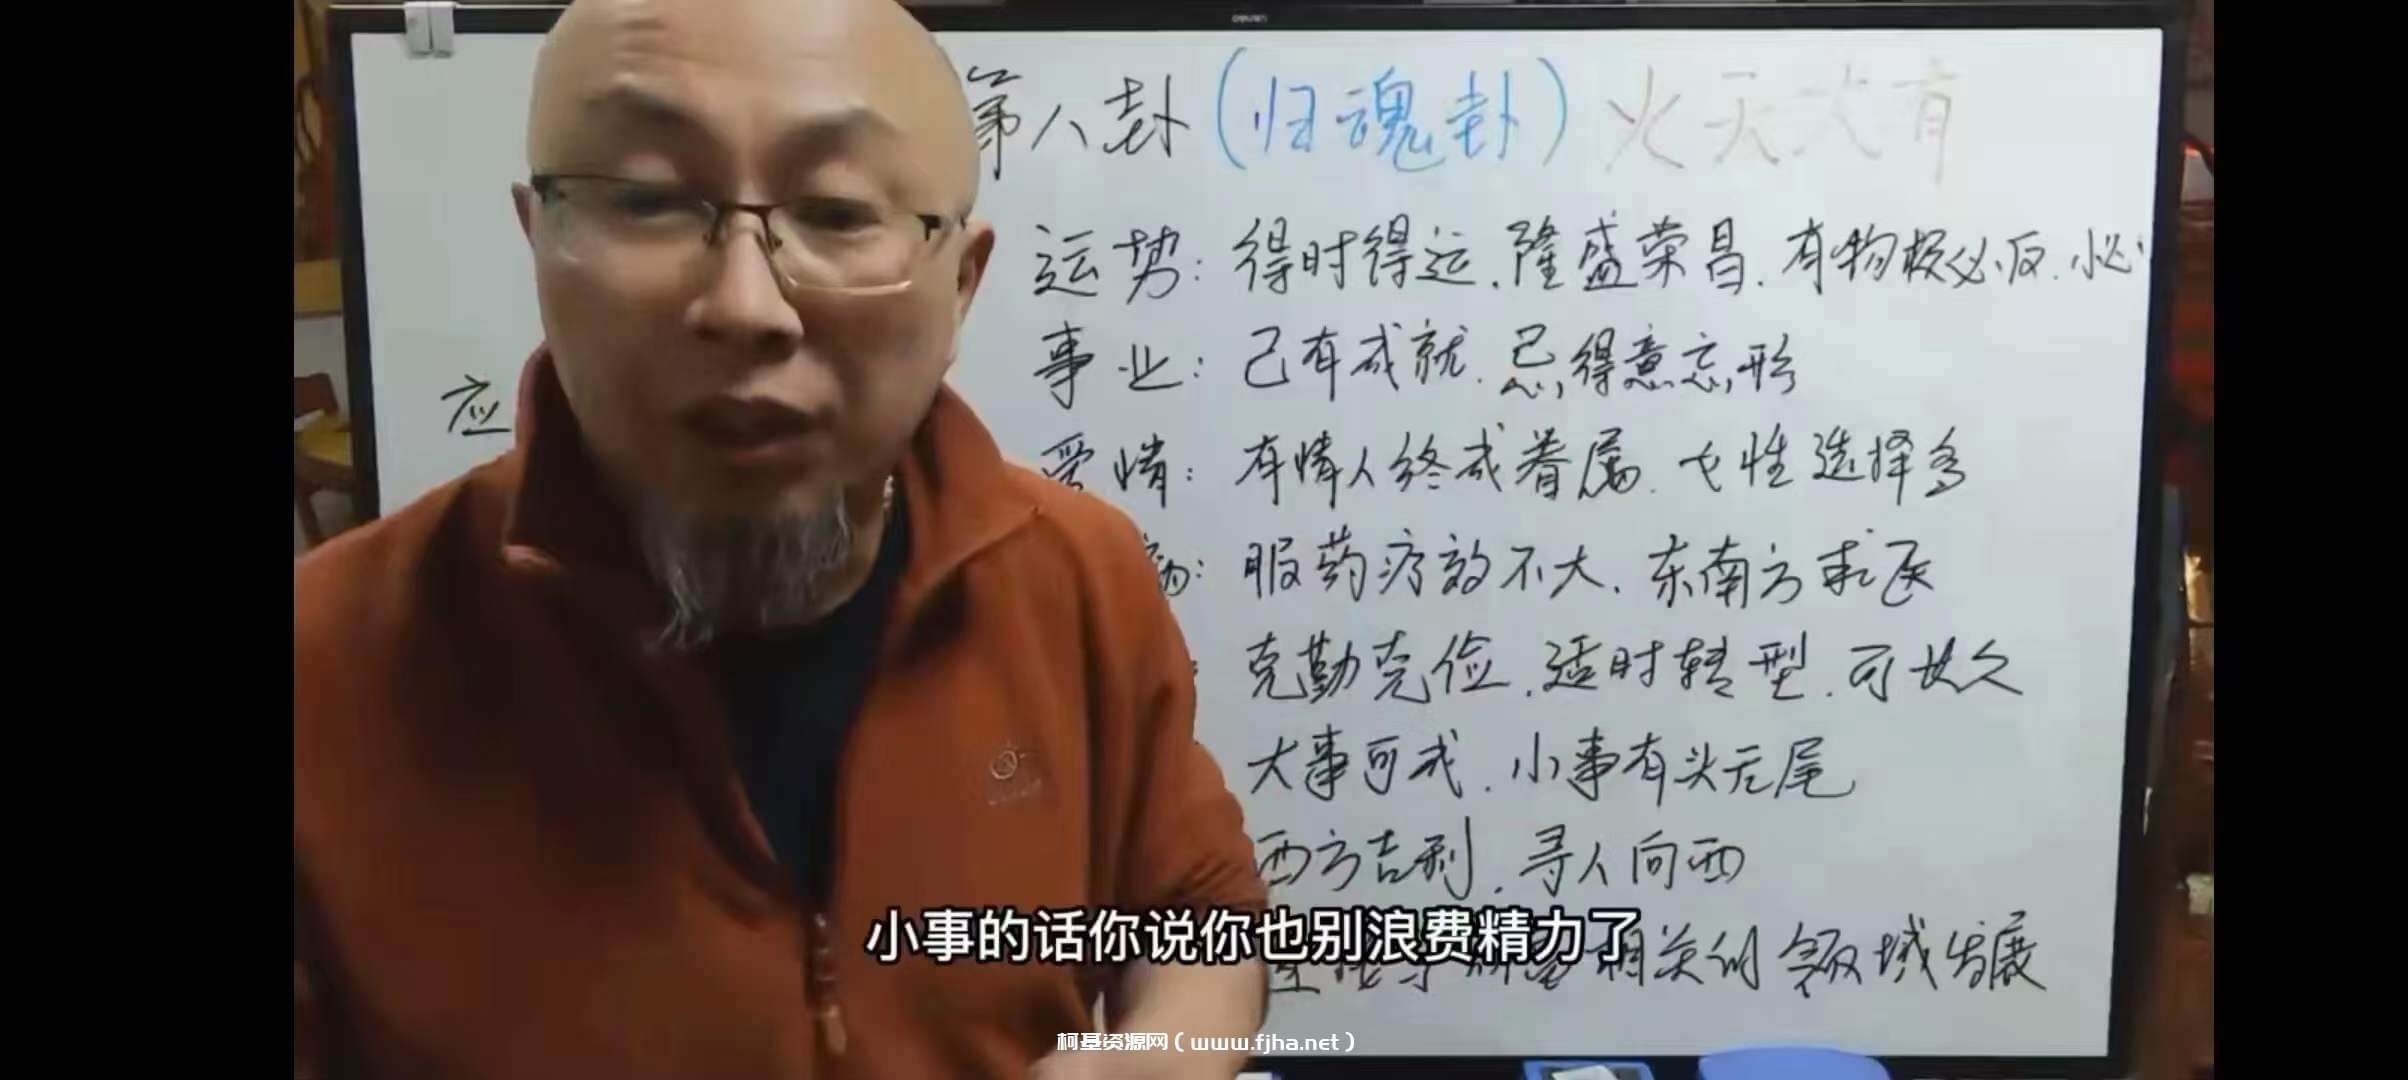 deli
第八卦(归魂卦)火天大有
运势:得时得运.隆盛荣昌.有物极必反.小心
事业:已有成就.忌得意忘形
应
爱情:有情人终成眷属.女性选择多
病:服药疗效不大.东南方求医
克勤克俭.适时转型.可长久
大事可成.小事有头无尾
西方吉利.寻人向西
小事的话你说你也别浪费精力了
相关的领域发展
柯基资源网(www.fjha.net)